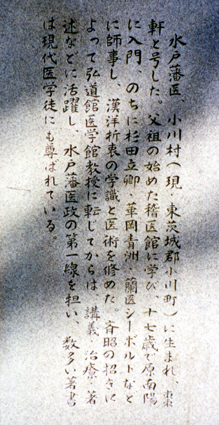 水戸藩医、小川村(現・東茨城郡小川町)に生まれ、棗
軒と号した。父祖の始めた稽医館に学び、十七歳で原南陽
に入門、のちに杉田立卿・華岡青洲・蘭医シーボルトなど
に師事し、漢洋折衷の学識と医術を修めた。斉昭の招きに
よって弘道館医学館教授に転じてからは、講義・治療・著
述などに活躍し、水戸藩医政の第一線を担い、数多い著書
は現代医学徒にも尊ばれている。